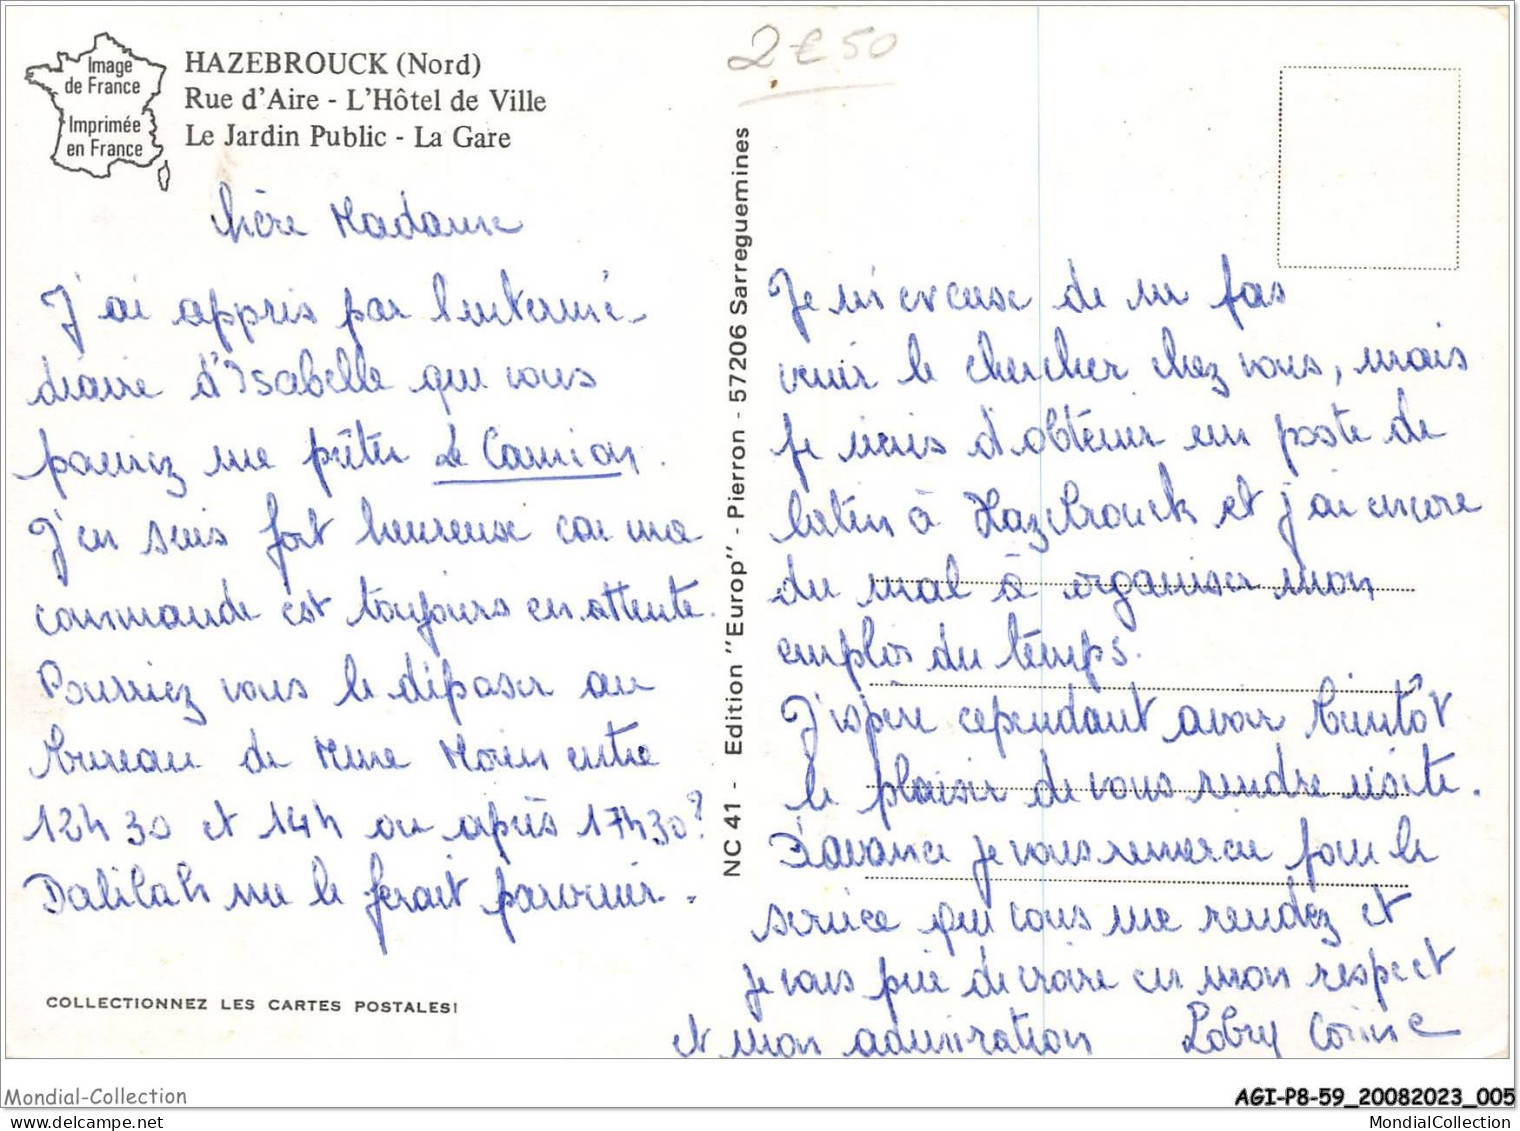 Image
de France
Imprimée
en France
HAZEBROUCK (Nord)
Rue d'Aire - L'Hôtel de Ville
Le Jardin Public - La Gare
2€50
Chère Madame
J'ai appris par l'intermé-
diaire d'Isabelle que vous
pouviez me prêter Le Camion.
J'en suis fort heureuse car ma
commande est toujours en attente.
Pourriez vous le déposer au
bureau de Mme entre
12h30 et 14h ou après 17h30?
Dalilah me le ferait parvenir.
COLLECTIONNEZ LES CARTES POSTALES!
NC 41 - Edition "Europ" - Pierron - 57206 Sarreguemines
Je m'excuse de ne pas
venir le chercher chez vous, mais
je viens d'obtenir un poste de
latin à Hazebrouck et j'ai encore
du mal à organiser mon
emploi du temps.
J'espère cependant avoir bientôt
le plaisir de vous rendre visite.
D'avance je vous remercie pour le
service que vous me rendez et
je vous prie de croire en mon respect
et mon admiration Lobry Corinne
Mondial-Collection
AGI-P8-59_20082023_005
MondialCollection